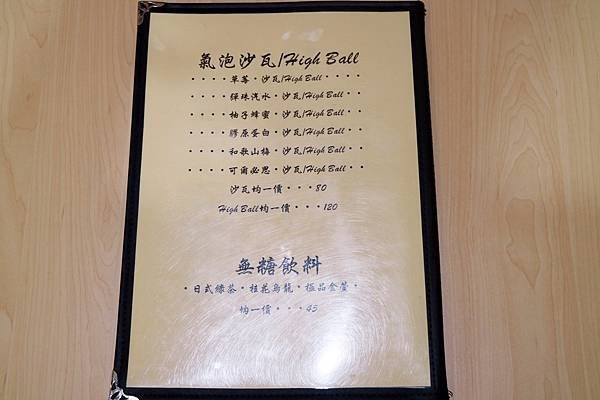 氣泡沙瓦/High Ball
····草莓·沙瓦/High Ball····
····彈珠汽水·沙瓦/High Ball··
····柚子蜂蜜·沙瓦/High Ball··
····膠原蛋白·沙瓦/High Ball··
····和歌山梅·沙瓦/High Ball··
····可爾必思·沙瓦/High Ball··
沙瓦均一價···80
High Ball均一價···120
無糖飲料
·日式綠茶·桂花烏龍·極品金萱·
均一價···45